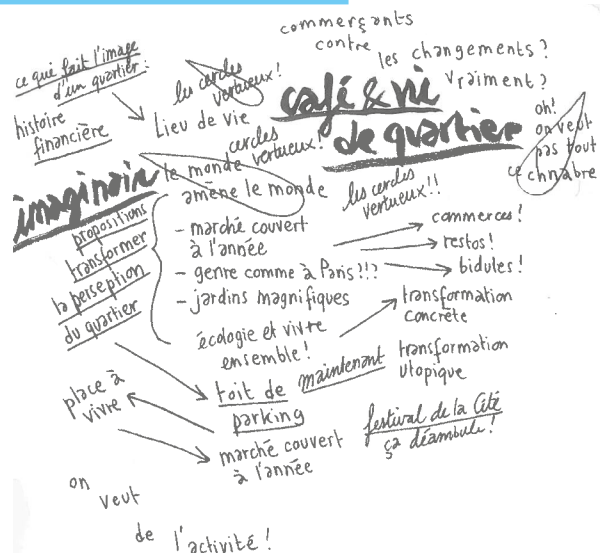 commerçants
contre
les changements?
vraiment?
ce qui fait l'image
d'un quartier:
histoire
financière
Lieu de vie
les cercles
vertueux!
café & vie
de quartier
oh!
on veut
pas tout
ce
cercles
vertueux!
le monde
amène le monde
les cercles
vertueux!!
imaginaire
propositions
transformer
la perseption
du quartier
- marché couvert
à l'année
- genre comme à Paris?!?
- jardins magnifiques
écologie et vivre
ensemble!
commerces!
restos!
bidules!
transformation
concrète
toit de
parking
maintenant
transformation
utopique
place à
vivre
marché couvert
à l'année
festival de la Cité
ça déambule!
on
veut
de
l'activité!